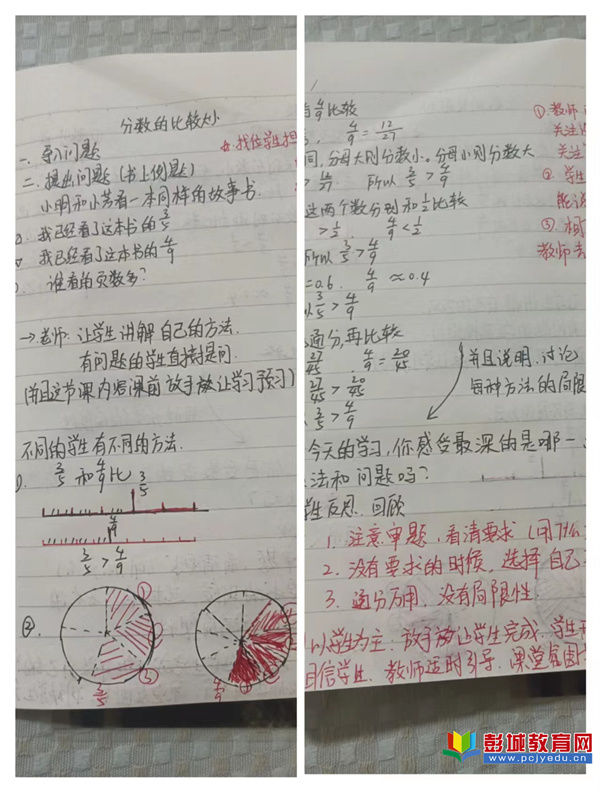 分数的比较大小
一、导入问题
☆找位学生担
二、提出问题(书上例题)
小明和小芳看一本同样的故事书.
我已经看了这本书的3/5
我已经看了这本书的4/9
谁看的页数多?
→老师:让学生讲解自己的方法.
有问题的学生直接提问.
(并且这节课内容课前放手放让学习预习)
不同的学生有不同的方法.
3/5和4/9比
3/5
4/9
3/5 > 4/9
②.
① ③
3/5
4/9
4/9比较
4/9 = 12/27
同,分母大则分数小。分母小则分数大
所以 3/5 > 4/9
这两个数分别和1/2比较
> 1/2. 4/9 < 1/2
所以 3/5 > 4/9
=0.6. 4/9 ≈0.4
3/5 > 4/9
通分,再比较
27/45 4/9 = 20/45
27/45 > 20/45
3/5 > 4/9
①教师
关注
关注
②学生
能说
③相
教师去
并且说明.讨论
每种方法的局限
今天的学习,你感受最深的是哪一
法和问题吗?
学生反思.回顾
1. 注意审题,看清要求(用什么
2. 没有要求的时候,选择自己
3. 通分万用,没有局限性.
以学生为主.放手放让学生完成.学生
相信学生.教师适时引导.课堂氛围
彭城教育网
www.pcjyedu.cn